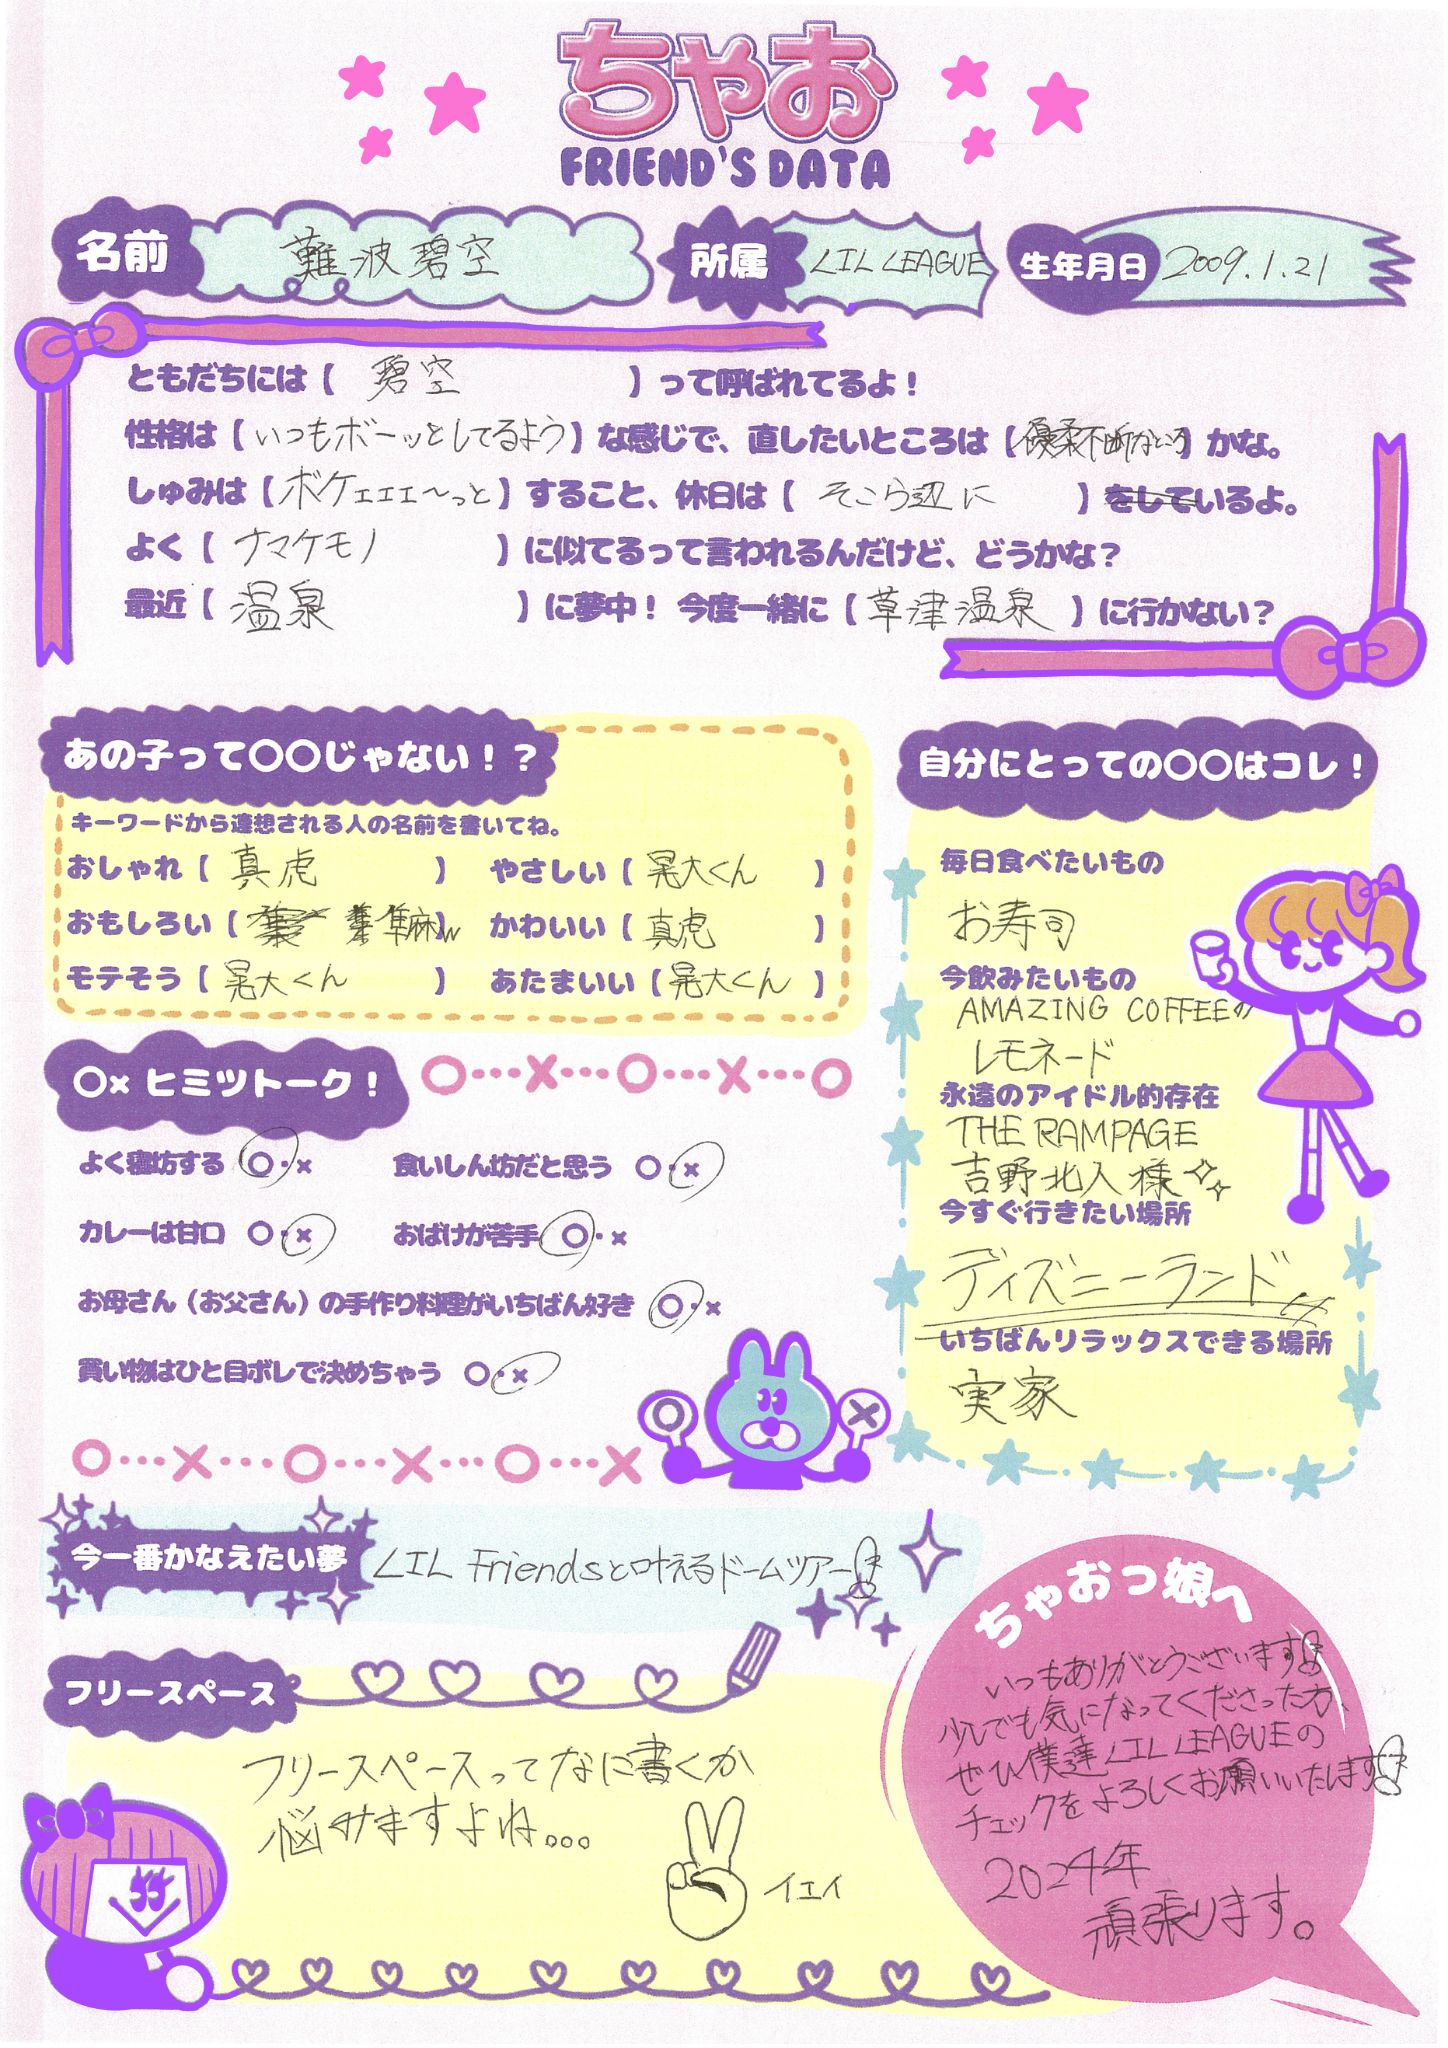 ちゃお
FRIEND'S DATA
名前 難波碧空 所属 LIL LEAGUE 生年月日 2009.1.21
ともだちには【 碧空 】って呼ばれてるよ！
性格は【いつもボーッとしてるよう】な感じで、直したいところは【優柔不断なところ】かな。
しゅみは【ボケェェェ〜っと】すること、休日は【 そこら辺に 】をしているよ。
よく【 ナマケモノ 】に似てるって言われるんだけど、どうかな？
最近【 温泉 】に夢中！ 今度一緒に【草津温泉】に行かない？
あの子って〇〇じゃない！？
キーワードから連想される人の名前を書いてね。
おしゃれ【 真虎 】 やさしい【 晃大くん 】
おもしろい【 隼麻w 】 かわいい【 真虎 】
モテそう【 晃大くん 】 あたまいい【 晃大くん 】
〇× ヒミツトーク！
よく寝坊する 〇・× 食いしん坊だと思う 〇・×
カレーは甘口 〇・× おばけが苦手 〇・×
お母さん（お父さん）の手作り料理がいちばん好き 〇・×
買い物はひと目ボレで決めちゃう 〇・×
自分にとっての〇〇はコレ！
毎日食べたいもの
お寿司
今飲みたいもの
AMAZING COFFEEの
レモネード
永遠のアイドル的存在
THE RAMPAGE
吉野北人様
今すぐ行きたい場所
ディズニーランド
いちばんリラックスできる場所
実家
今一番かなえたい夢 LIL Friendsと叶えるドームツアー!
フリースペース
フリースペースってなに書くか
悩みますよね...
イエイ
ちゃおっ娘へ
いつもありがとうございます!
少しでも気になってくださった方、
ぜひ僕達LIL LEAGUEの
チェックをよろしくお願いいたします!
2024年
頑張ります。